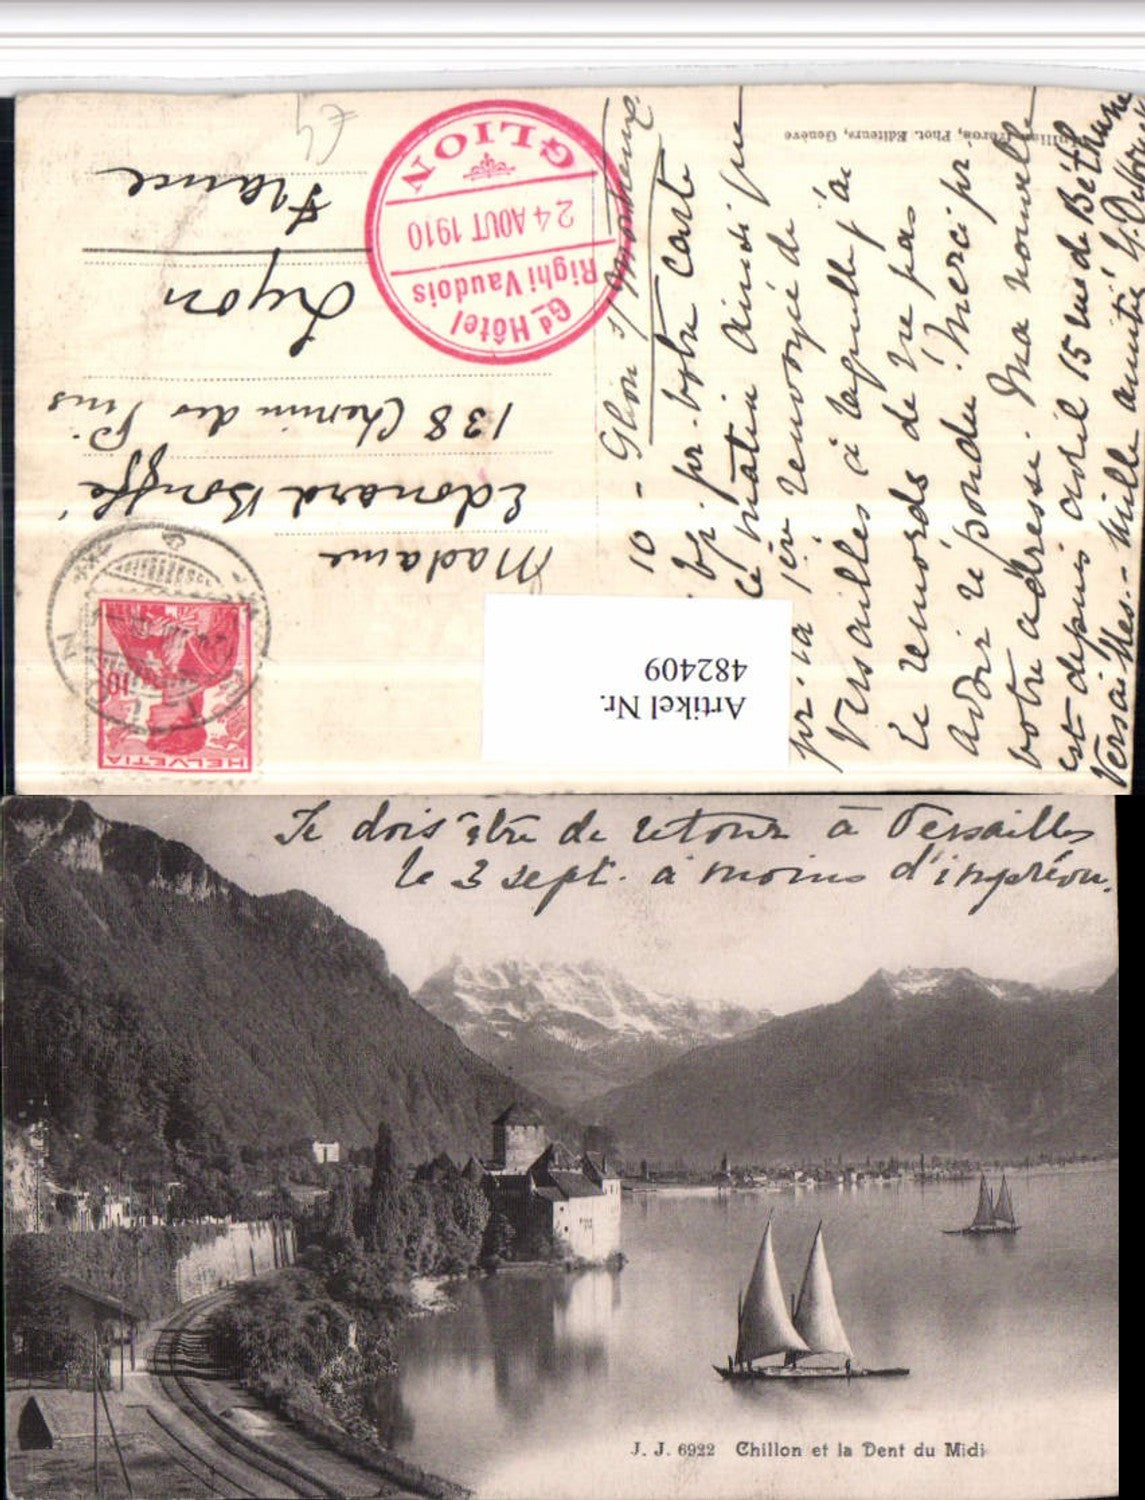 Jullien frères, Phot. Editeurs, Genève
GLION
24 AOUT 1910
Righi Vaudois
Gd Hôtel
€4
Madame
Edouard Bouffé
138 Chemin des Pins
Lyon
France
HELVETIA
10
Artikel Nr.
482409
10 - Glion s/ Montreux
pr. votre Carte
ce matin ainsi que
pr. la 1ère renvoyée de
Versailles à laquelle j'ai
le remords de ne pas
avoir répondu! Merci pr.
votre adresse. Ma nouvelle
est depuis avril 15 rue de Béthune
Versailles. - Mille amitiés
Je dois être de retour à Versailles
le 3 sept. à moins d'imprévu.
J. J. 6922 Chillon et la Dent du Midi